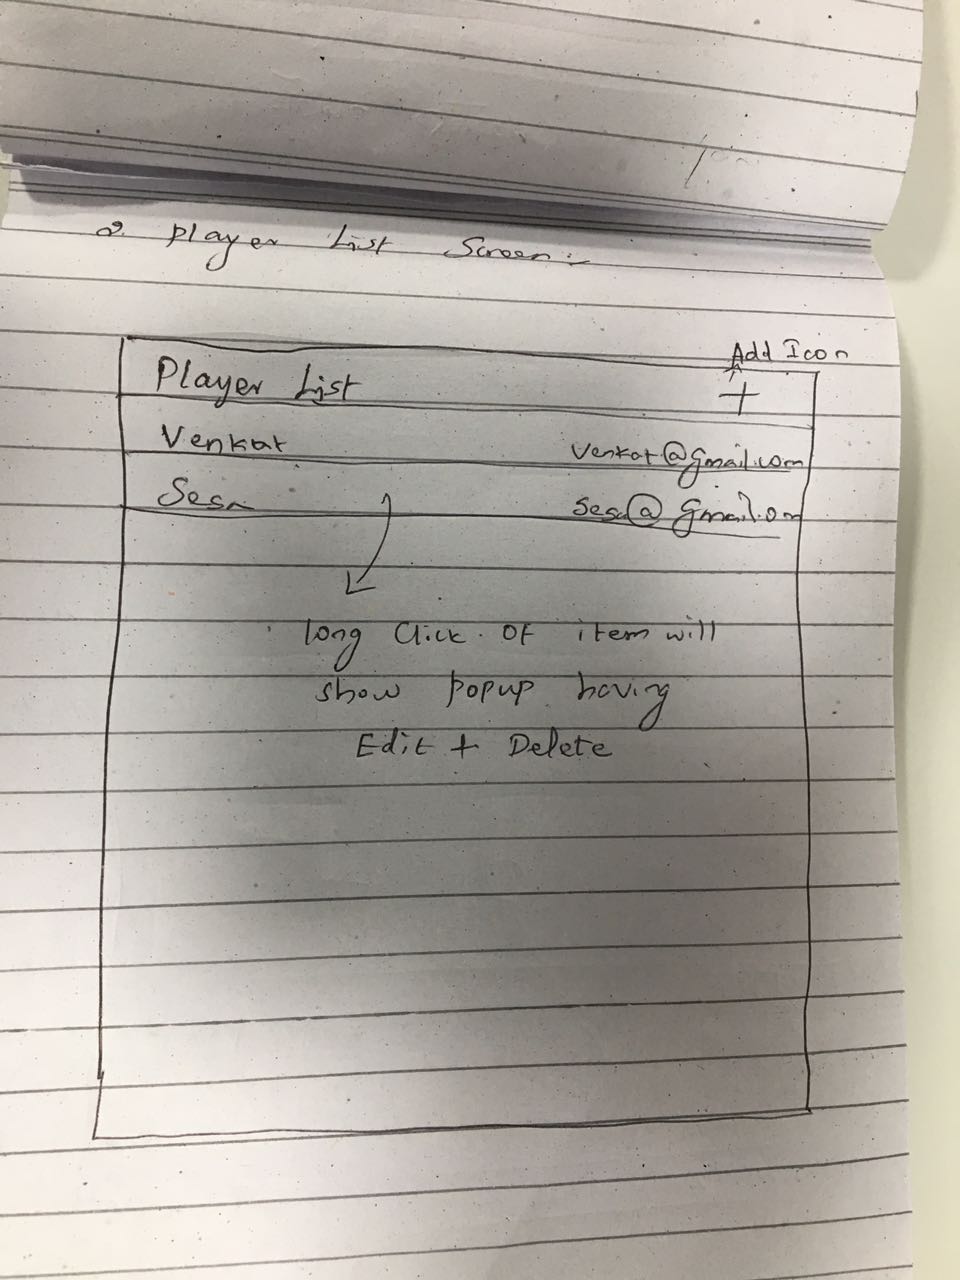 2. Player List Screen :-
Add Icon
Player List +
Venkat venkat@gmail.com
Sesa sesa@gmail.om
long click of item will
show popup having
Edit + Delete